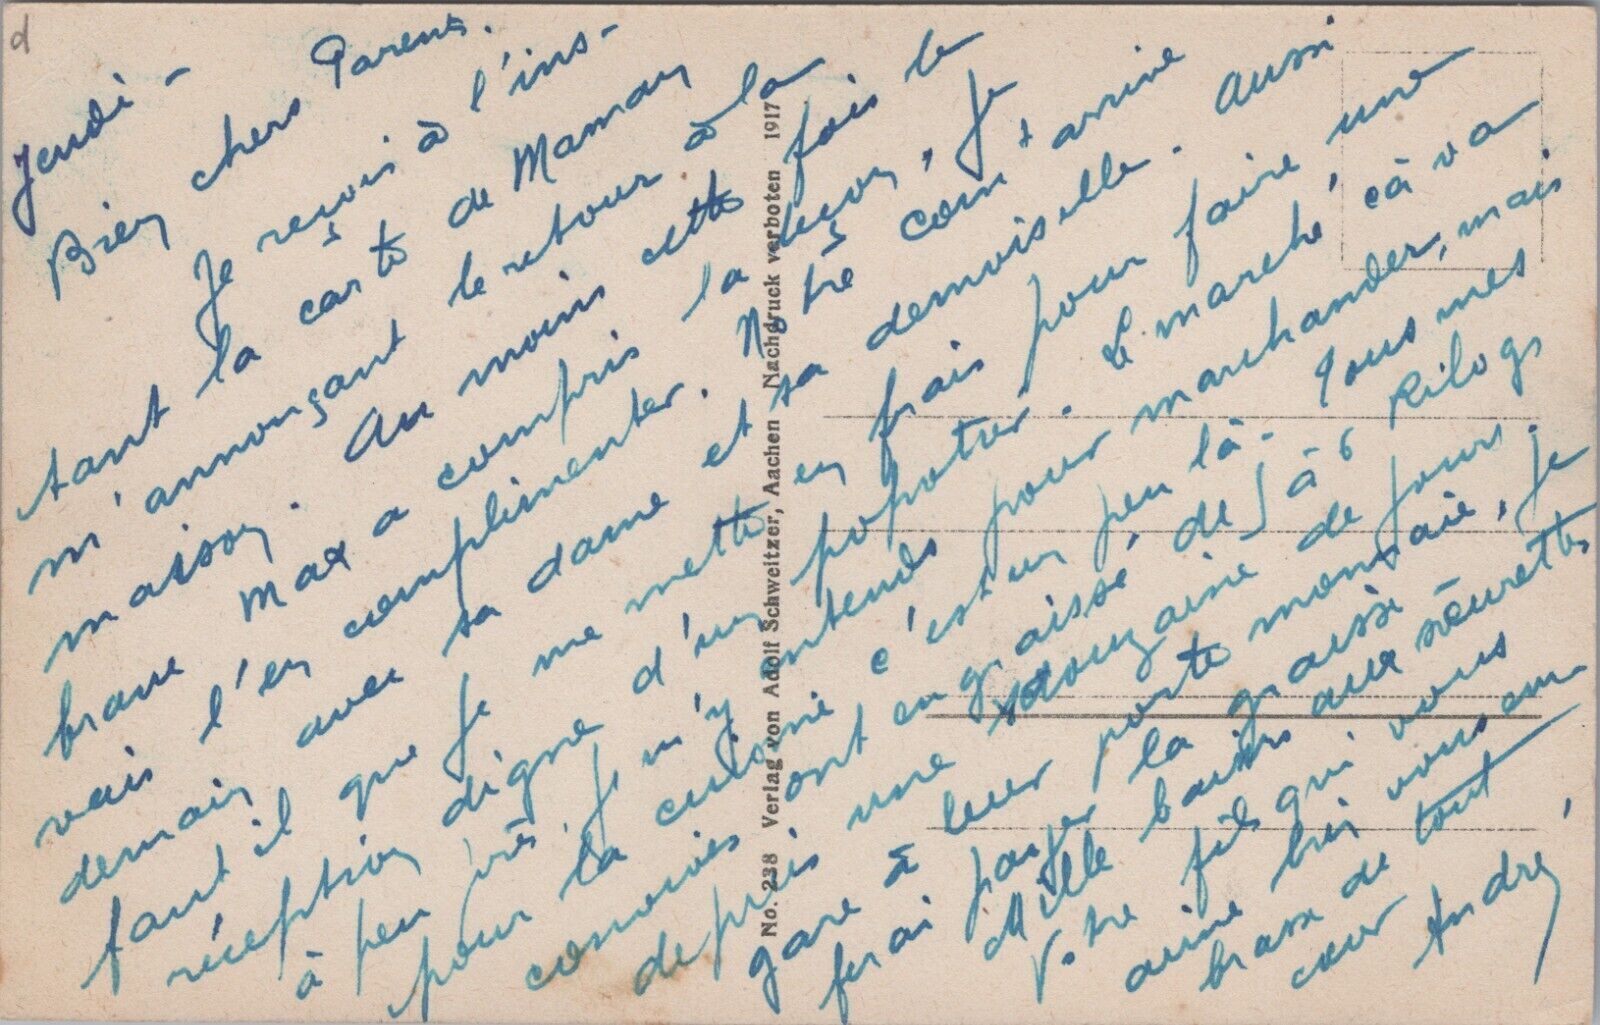 d
Jeudi -
Bien chers Parents.
Je reçois à l'ins-
tant la carte de Maman
m'annonçant le retour à la
maison. Au moins cette fois le
brave Max a compris la leçon, je
vais l'en complimenter. Notre com't arrive
demain avec sa dame et sa demoiselle. Aussi
faut il que je me mette en frais pour faire une
réception digne d'un popotier. Le marché, çà va
à peu près, je m'y entends pour marchander, mais
pour la cuisine c'est un peu là. Tous mes
convives ont engraissé, de 5 à 6 Kilogs
depuis une douzaine de jours.
gare à leur porte monnaie, je
ferai payer la graisse
Mille baisers aux sœurettes
Votre fils qui vous
aime bien vous em
brasse de tout
cœur André
No. 238 Verlag von Adolf Schweitzer, Aachen Nachdruck verboten 1917